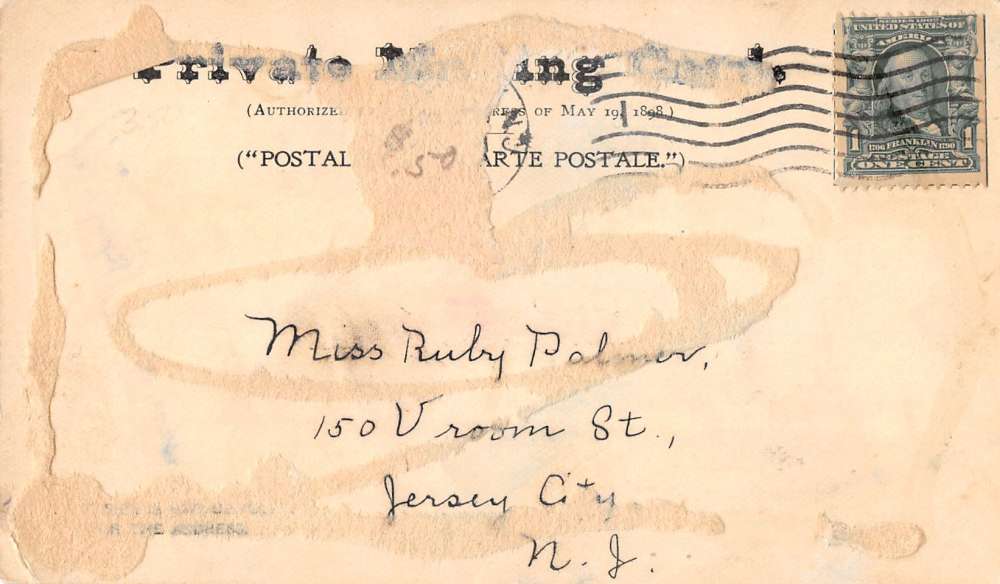 Private Mailing Card.
(AUTHORIZED RESS OF MAY 19, 1898.)
("POSTAL ARTE POSTALE.")
.50
SERIES 1902
UNITED STATES OF
AMERI
1706 FRANKLIN 1790
POSTAGE
1 ONE CENT 1
Miss Ruby Palmer,
150 Vroom St.,
Jersey City
N. J.
THE ADDRESS.